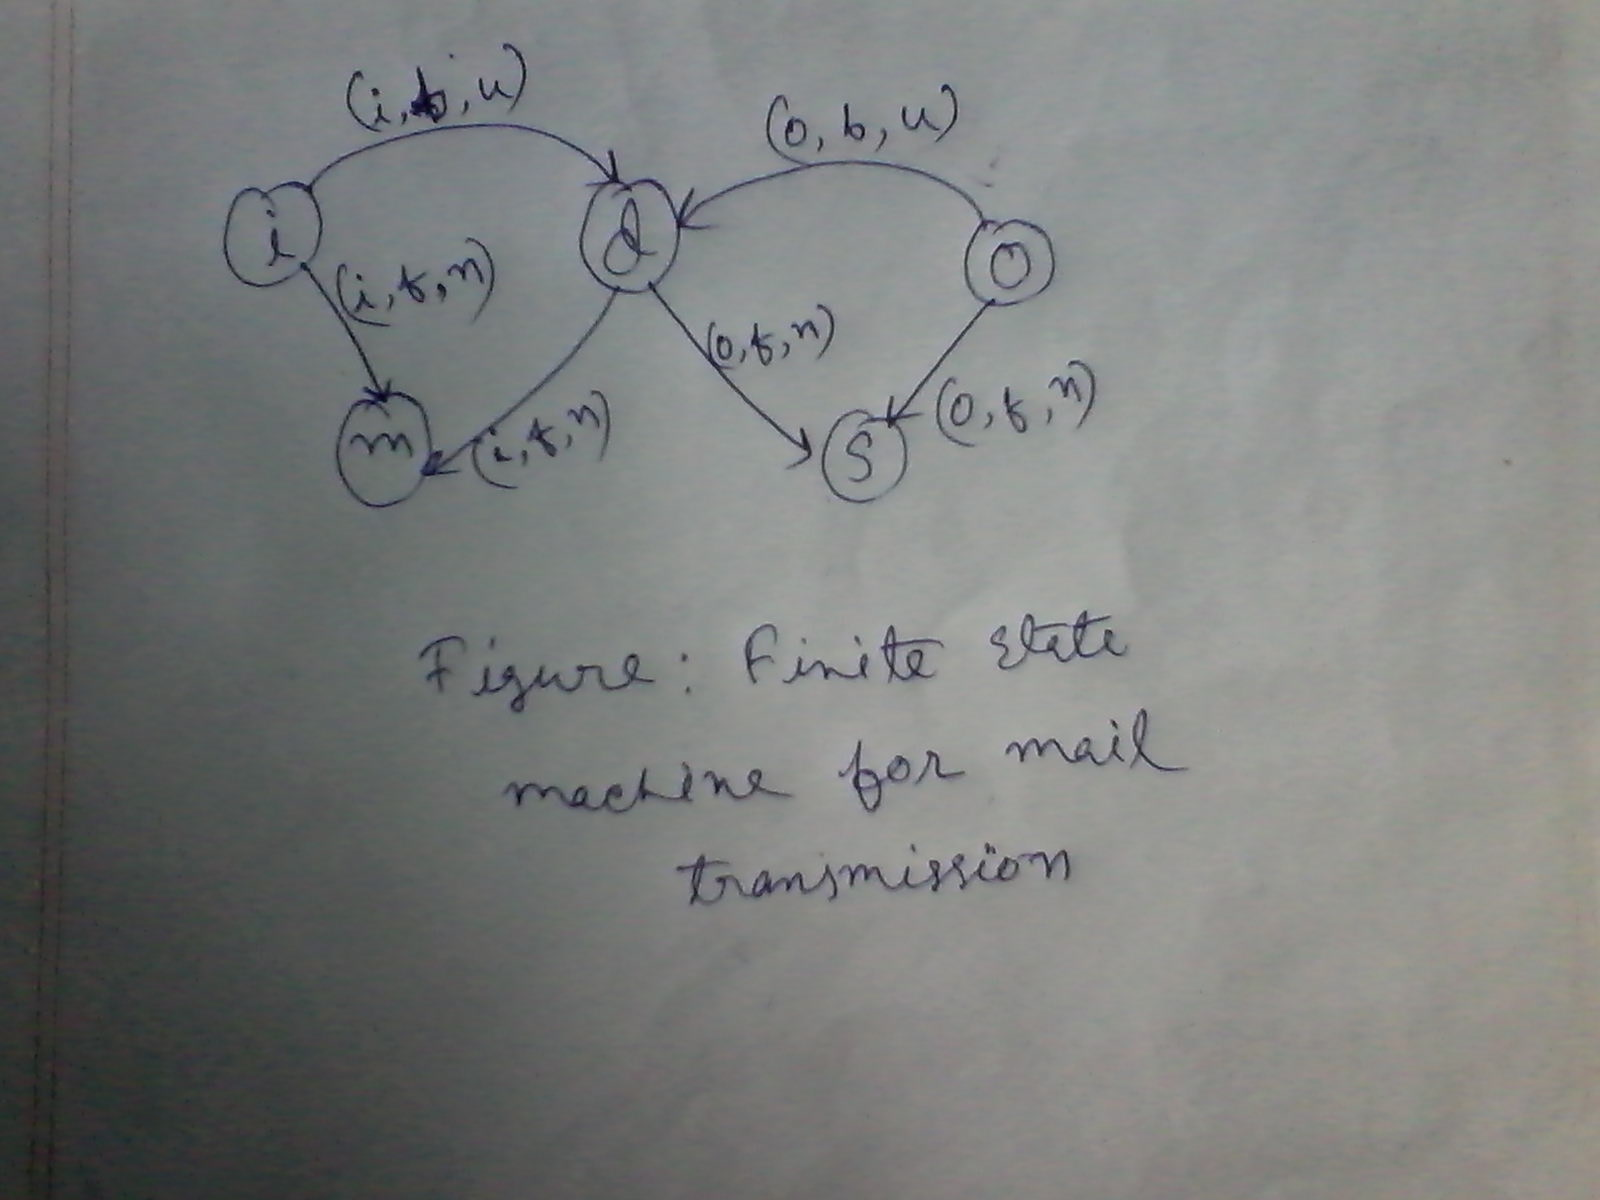 (i, b, u)
(0, b, u)
i
d
0
(i, t, n)
(0, t, n)
m
(i, t, n)
S
(0, t, n)
Figure: Finite state
machine for mail
transmission